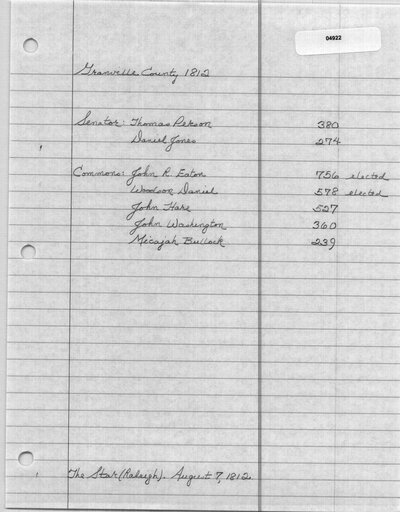 04922
Granville County 1812
Senator: Thomas Person 380
Daniel Jones 274
Commons: John R. Eaton 756 elected
Woodson Daniel 578 elected
John Hare 527
John Washington 360
Micajah Bullock 239
The Star (Raleigh). August 7, 1812.